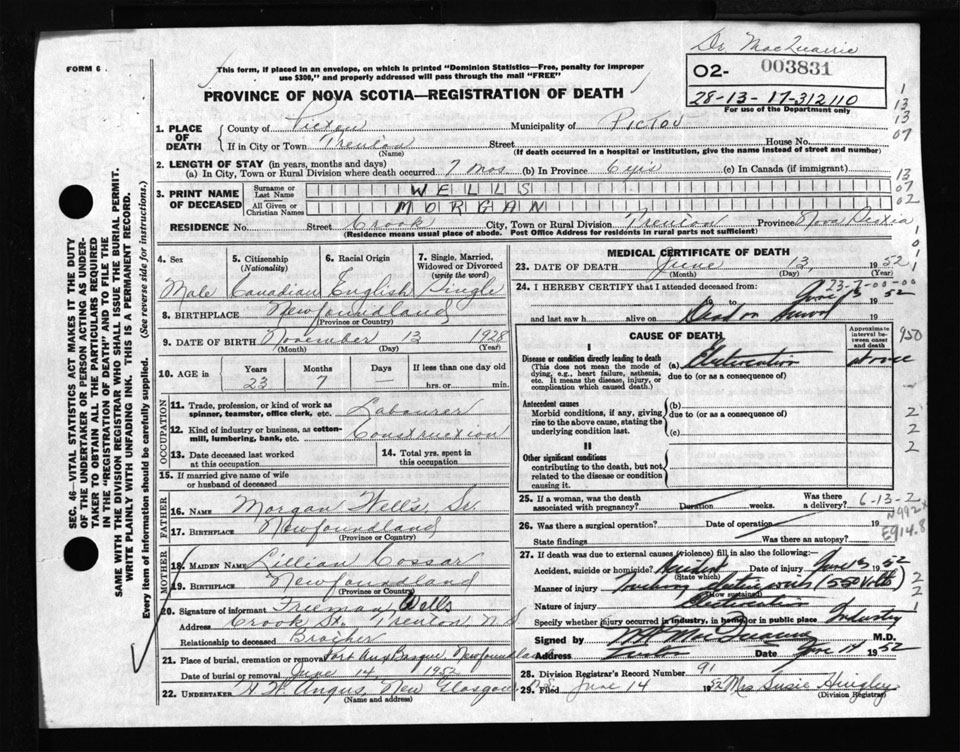 Dr. MacQuarrie
FORM 6
This form, if placed in an envelope, on which is printed "Dominion Statistics—Free, penalty for improper
use $300," and properly addressed will pass through the mail "FREE"
02- 003831
28-13-17-312110
For use of the Department only
PROVINCE OF NOVA SCOTIA—REGISTRATION OF DEATH
1. PLACE OF DEATH
County of Pictou Municipality of Pictou
If in City or Town Trenton Street House No.
(Name) (If death occurred in a hospital or institution, give the name instead of street and number)
2. LENGTH OF STAY (in years, months and days)
(a) In City, Town or Rural Division where death occurred 7 mos. (b) In Province (c) In Canada (if immigrant)
3. PRINT NAME OF DECEASED
Surname or Last Name WELLS
All Given or Christian Names MORGAN
RESIDENCE No. Street Crook City, Town or Rural Division Trenton Province Nova Scotia
(Residence means usual place of abode. Post Office Address for residents in rural parts not sufficient)
4. Sex
Male
5. Citizenship
(Nationality)
Canadian
6. Racial Origin
English
7. Single, Married,
Widowed or Divorced
(write the word)
Single
8. BIRTHPLACE Newfoundland
(Province or Country)
9. DATE OF BIRTH November 13 1928
(Month) (Day) (Year)
10. AGE in
Years Months Days If less than one day old
23 7 — hrs. or min.
OCCUPATION
11. Trade, profession, or kind of work as
spinner, teamster, office clerk, etc. Labourer
12. Kind of industry or business, as cotton-
mill, lumbering, bank, etc. Construction
13. Date deceased last worked
at this occupation
14. Total yrs. spent in
this occupation
15. If married give name of wife
or husband of deceased
FATHER
16. Name Morgan Wells Sr.
17. Birthplace Newfoundland
(Province or Country)
MOTHER
18. MAIDEN NAME Lillian Cossar
19. Birthplace Newfoundland
(Province or Country)
20. Signature of informant Freeman Wells
Address Crook St. Trenton N.S.
Relationship to deceased Brother
21. Place of burial, cremation or removal Port Aux Basque, Newfoundland
Date of burial or removal June 14, 1952
22. UNDERTAKER H.W. Angus, New Glasgow N.S.
(Name and address)
MEDICAL CERTIFICATE OF DEATH
23. DATE OF DEATH June 13, 1952
(Month) (Day) (Year)
23-7-00-00
24. I HEREBY CERTIFY that I attended deceased from:
June 13 1952
to 19
and last saw h alive on Dead on 19
CAUSE OF DEATH
Approximate
interval be-
tween onset
and death
I
Disease or condition directly leading to death
(This does not mean the mode of
dying, e.g., heart failure, asthenia,
etc. It means the disease, injury, or
complication which caused death.)
(a) Electrocution at once
due to (or as a consequence of)
Antecedent causes
Morbid conditions, if any, giving
rise to the above cause, stating the
underlying condition last.
(b)
due to (or as a consequence of)
(c)
II
Other significant conditions
contributing to the death, but not
related to the disease or condition
causing it.
25. If a woman, was the death
associated with pregnancy? Duration weeks. Was there
a delivery?
6-13-2
N992X
E914.8
26. Was there a surgical operation? Date of operation 19
State findings Was there an autopsy?
27. If death was due to external causes (violence) fill in also the following:
Accident, suicide or homicide? Accident Date of injury June 13 1952
(State which)
Manner of injury Touching electric wires (550 Volts)
(How sustained)
Nature of injury Electrocution
Specify whether injury occurred in industry, in home or in public place Industry
Signed by MacQuarrie M.D.
Address Trenton Date June 14 1952
28. Division Registrar's Record Number 91
29. Filed June 14 1952 Mrs Susie Hingley
(Division Registrar)
SEC. 46—VITAL STATISTICS ACT MAKES IT THE DUTY
OF THE UNDERTAKER OR PERSON ACTING AS UNDER-
TAKER TO OBTAIN ALL THE PARTICULARS REQUIRED
IN THE "REGISTRATION OF DEATH" AND TO FILE THE
SAME WITH THE DIVISION REGISTRAR WHO SHALL ISSUE THE BURIAL PERMIT.
WRITE PLAINLY WITH UNFADING INK. THIS IS A PERMANENT RECORD.
Every item of information should be carefully supplied. (See reverse side for instructions.)
1
13
13
07
13
07
02
950
2
2
2
2
2
1